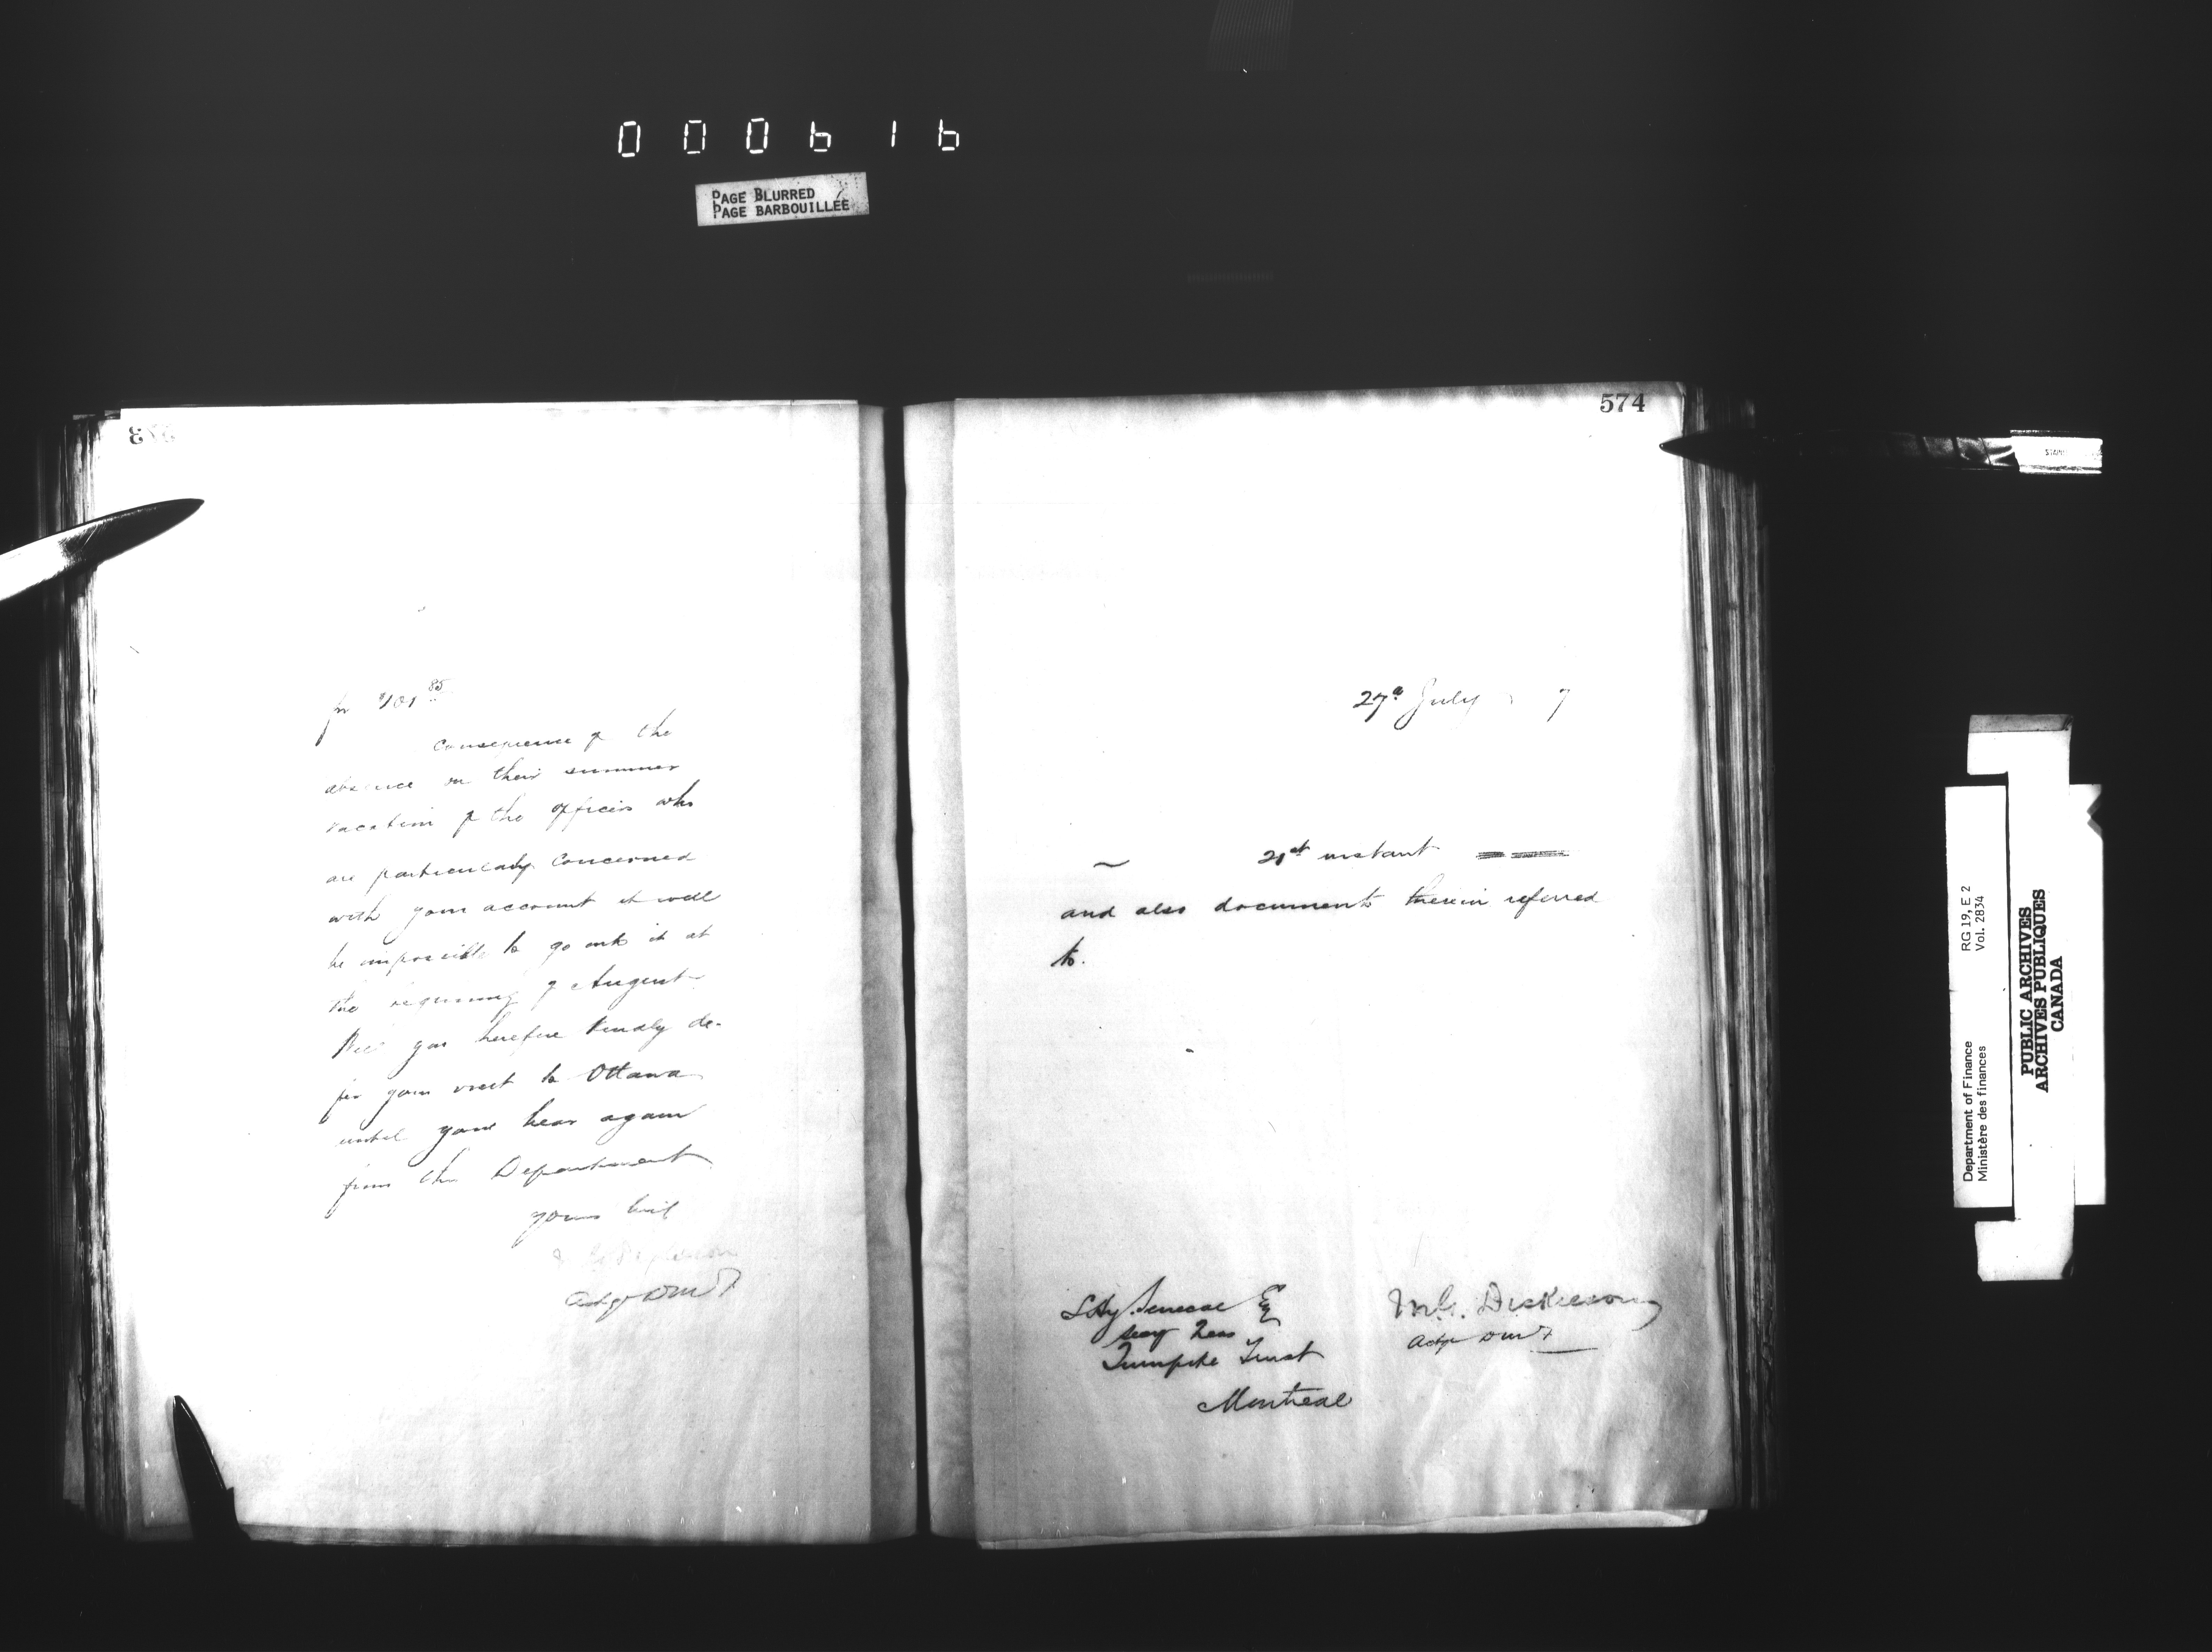 000616
PAGE BLURRED
PAGE BARBOUILLÉE
for $101 85
Consequence of the
absence on their summer
vacation of the officers who
are particularly concerned
with your account it will
be impossible to go into it at
the beginning of August
Will you therefore kindly de-
fer your visit to Ottawa
until you hear again
from the Department
Yours truly
Actg DMF
574
27th July 7
21st instant
and also documents therein referred
to.
Senecal Esq
Secy Treas
Turnpike Trust
Montreal
M.G. Dickieson
Actg DMF
Department of Finance RG 19, E 2
Ministère des finances Vol. 2834
PUBLIC ARCHIVES
ARCHIVES PUBLIQUES
CANADA